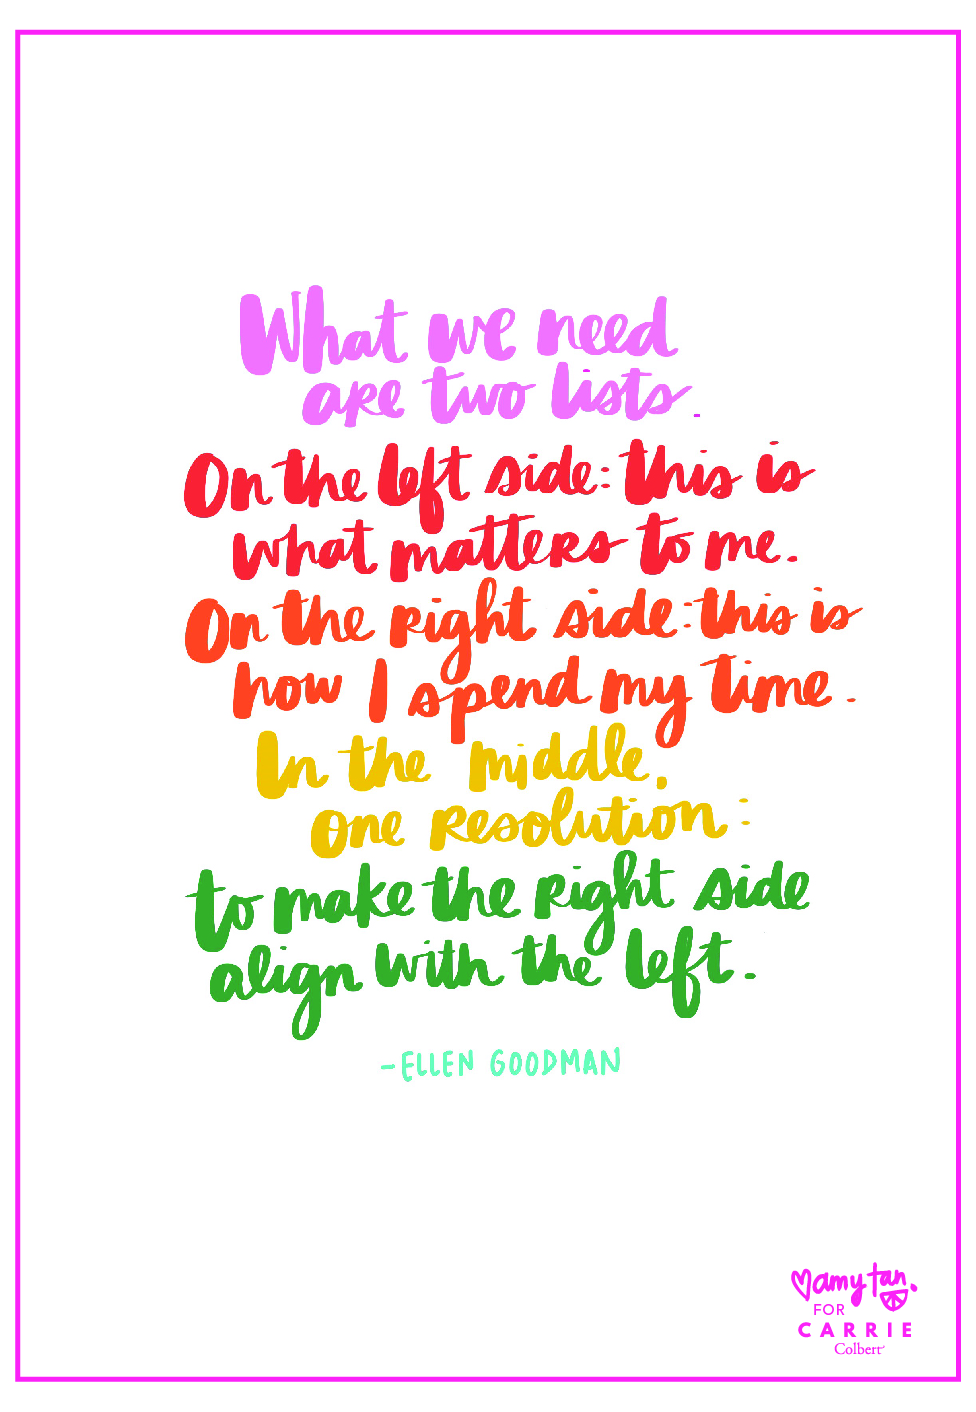 What we need
are two lists.
On the left side: this is
what matters to me.
On the right side: this is
how I spend my time.
In the middle,
one resolution:
to make the right side
align with the left.
-ELLEN GOODMAN
amy tan.
FOR
CARRIE
Colbert